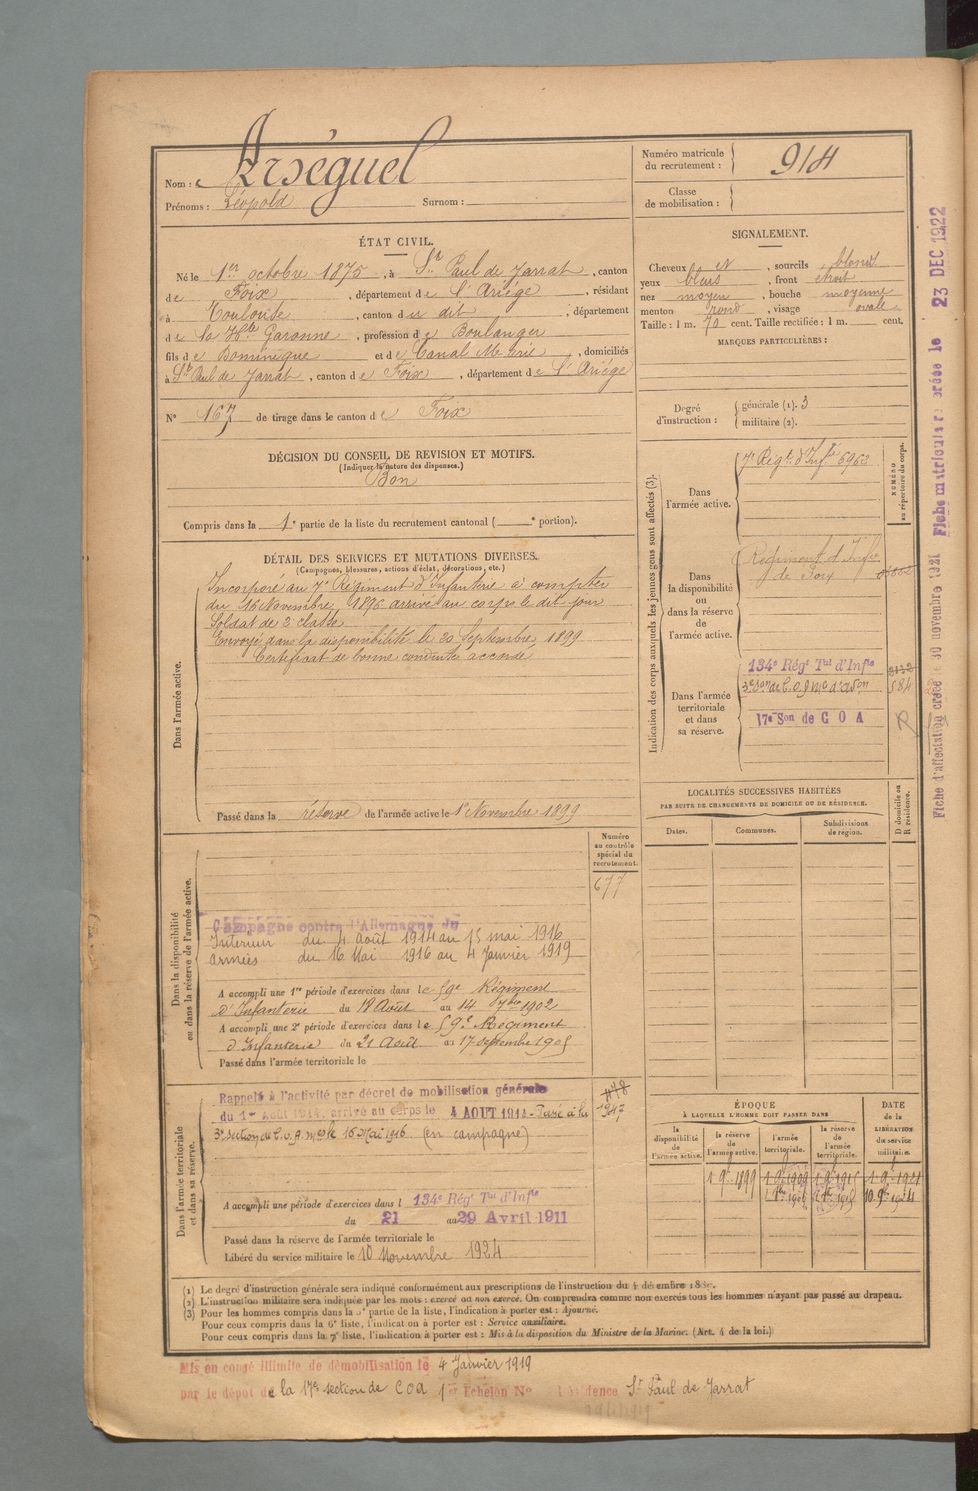 Nom : Arséguel
Prénoms : Léopold Surnom :
Numéro matricule
du recrutement : 914
Classe
de mobilisation :
ÉTAT CIVIL.
Né le 1er octobre 1875, à St Paul de Jarrat, canton
de Foix, département de l'Ariége, résidant
à Toulouse, canton du dit, département
de la Hte Garonne, profession de Boulanger
fils de Dominique et de Canal Marie, domiciliés
à St Paul de Jarrat, canton de Foix, département de l'Ariége
N° 167 de tirage dans le canton de Foix
SIGNALEMENT.
Cheveux et, sourcils blond
yeux bleus, front étroit
nez moyen, bouche moyenne
menton rond, visage ovale
Taille : 1 m. 70 cent. Taille rectifiée : 1 m. cent.
MARQUES PARTICULIÈRES :
Degré
d'instruction : générale (1). 3
militaire (2).
DÉCISION DU CONSEIL DE REVISION ET MOTIFS.
(Indiquer la nature des dispenses.)
Bon
Compris dans la 1e partie de la liste du recrutement cantonal ( e portion).
DÉTAIL DES SERVICES ET MUTATIONS DIVERSES.
(Campagnes, blessures, actions d'éclat, décorations, etc.)
Dans l'armée active.
Incorporé au 7e Régiment d'Infanterie à compter
du 16 Novembre 1896 arrivé au corps le dit jour
Soldat de 2 classe
Envoyé dans la disponibilité le 20 Septembre 1899
Certificat de bonne conduite accordé
Passé dans la réserve de l'armée active le 1er Novembre 1899
Indication des corps auxquels les jeunes gens sont affectés (3).
NUMÉRO
au répertoire du corps.
Dans
l'armée active.
7e Régt d'Infie 6962
Dans
la disponibilité
ou
dans la réserve
de
l'armée active.
Régiment d'Infie
de Foix
Dans l'armée
territoriale
et dans
sa réserve.
134e Régt Tal d'Infie
584
17e Son de C O A
LOCALITÉS SUCCESSIVES HABITÉES
PAR SUITE DE CHANGEMENTS DE DOMICILE OU DE RÉSIDENCE.
Dates.
Communes.
Subdivisions
de région.
D domicile ou
R résidence.
Dans la disponibilité
ou dans la réserve de l'armée active.
Numéro
au contrôle
spécial du
recrutement.
677
Campagne contre l'Allemagne du
Intérieur du 4 Août 1914 au 15 mai 1916
armées du 16 Mai 1916 au 4 Janvier 1919
A accompli une 1re période d'exercices dans le 59e Régiment
d'Infanterie du 18 Août au 14 7bre 1902
A accompli une 2e période d'exercices dans le 59e Régiment
d'Infanterie du 21 Août au 17 septembre 1905
Passé dans l'armée territoriale le
Dans l'armée territoriale
et dans sa réserve.
Rappelé à l'activité par décret de mobilisation générale
du 1er Août 1914, arrivé au corps le 4 AOUT 1914 - Passé à la
3e section de C.O.A. le 16 Mai 1916 (en campagne)
1947
A accompli une période d'exercices dans l 134e Régt Tal d'Infie
du 21 au 29 Avril 1911
Passé dans la réserve de l'armée territoriale le
Libéré du service militaire le 10 Novembre 1924
ÉPOQUE
À LAQUELLE L'HOMME DOIT PASSER DANS
DATE
de la
LIBÉRATION
du service
militaire.
la
disponibilité
de
l'armée active.
la réserve
de
l'armée active.
l'armée
territoriale.
la réserve
de
l'armée
territoriale.
1 9e 1899
(1) Le degré d'instruction générale sera indiqué conformément aux prescriptions de l'instruction du 4 décembre
(2) L'instruction militaire sera indiquée par les mots : exercé ou non exercé. On comprendra comme non exercés tous les hommes n'ayant pas passé au drapeau.
(3) Pour les hommes compris dans la 5e partie de la liste, l'indication à porter est : Ajourné.
Pour ceux compris dans la 6e liste, l'indication à porter est : Service auxiliaire.
Pour ceux compris dans la 7e liste, l'indication à porter est : Mis à la disposition du Ministre de la Marine. (Art. 4 de la loi.)
Mis en congé illimité de démobilisation le 4 Janvier 1919
par le dépôt de la 17e section de COA 1er Echelon N° résidence St Paul de Jarrat
Fiche d'affectation créée le 30 novembre 1921 Fiche matricule le 23 DEC 1922